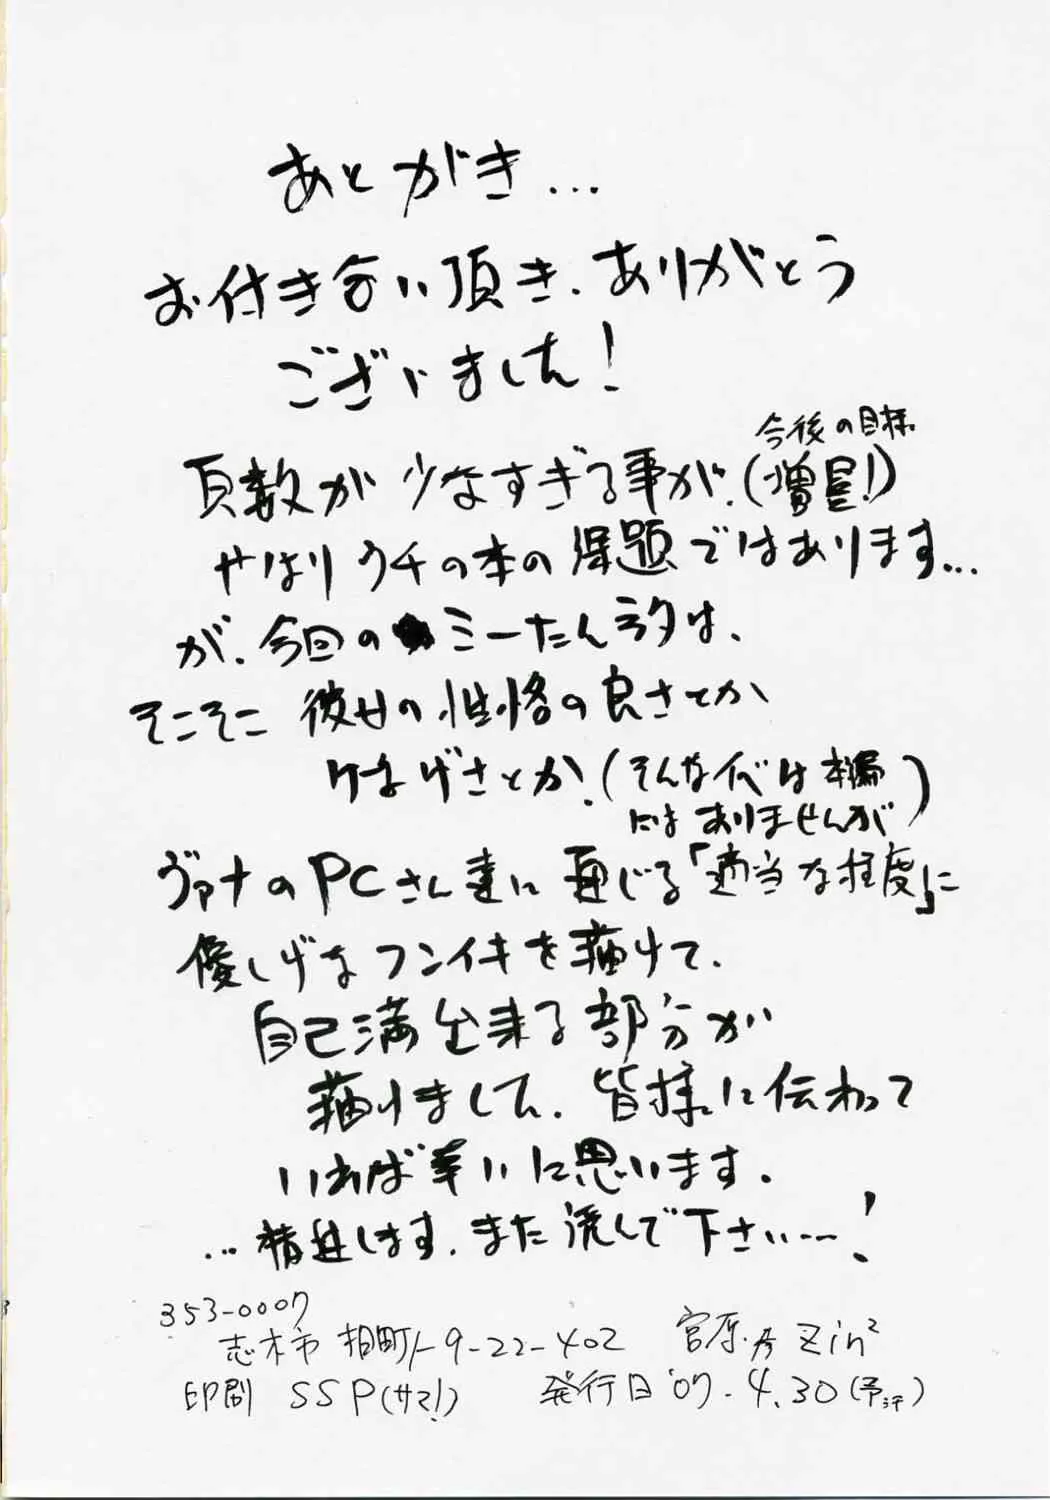 あとがき...
お付き合い頂き、ありがとう
ございました!
今後の目標
頁数が少なすぎる事が、(増量!)
やはりウチの本の課題ではあります...
が、今回のミーたんネタは、
そこそこ彼女の性格の良さとか
けなげさとか、(そんな代は本編
にはありませんが)
ヴァナのPCさん達に通じる「適当な程度」に
優しげなフンイキを描けて、
自己満出来る部分が
描けました、皆様に伝わって
いれば幸いに思います。
...精進します、また読んで下さい...!
353-0007
志木市柏町1-9-22-402 宮原 Zin²
印刷 SSP(サマ!) 発行日'07.4.30(予定)